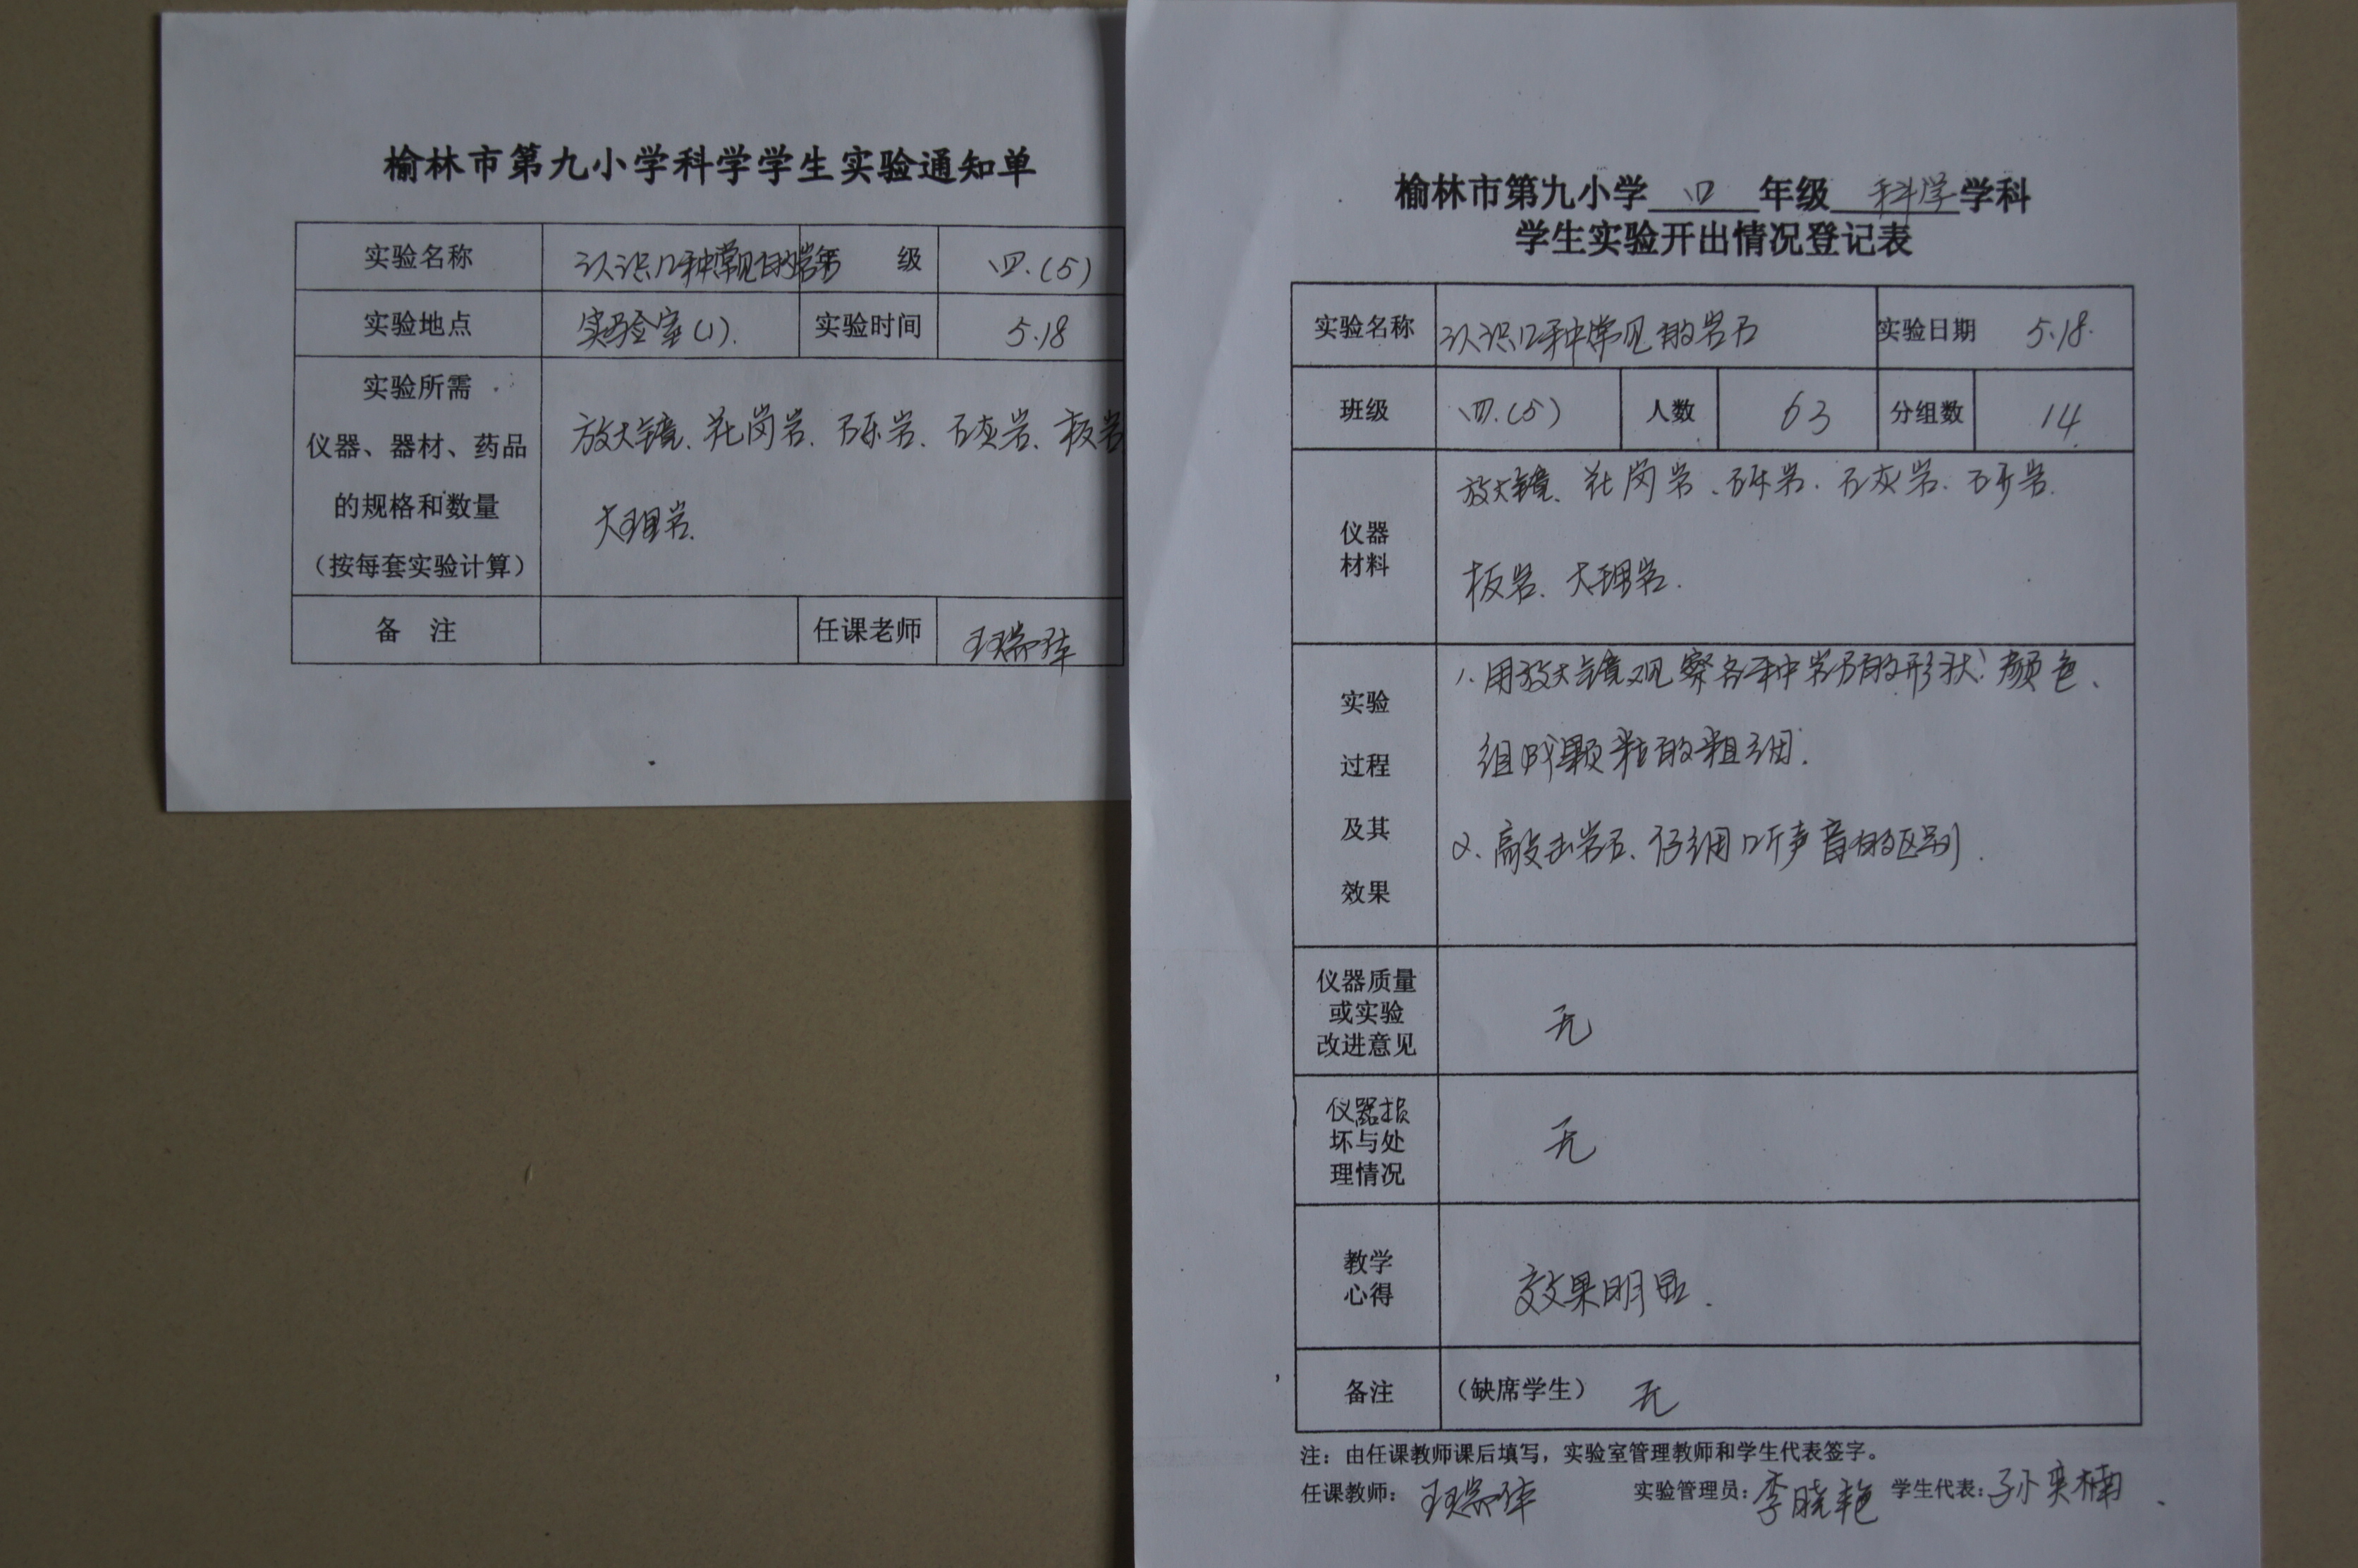 榆林市第九小学科学学生实验通知单
实验名称 认识几种常见的岩 年 级 四.(5)
实验地点 实验室(1). 实验时间 5.18
实验所需
仪器、器材、药品
的规格和数量
(按每套实验计算)
放大镜、花岗岩、砾岩、石灰岩、板岩
大理岩.
备 注 任课老师
榆林市第九小学 四 年级 科学 学科
学生实验开出情况登记表
实验名称 认识几种常见的岩石 实验日期 5.18.
班级 四.(5) 人数 63 分组数 14
仪器
材料
放大镜、花岗岩、砾岩、石灰岩、砂岩.
板岩、大理岩.
实验
过程
及其
效果
1. 用放大镜观察各种岩石的形状、颜色、
组成颗粒的粗细.
2. 敲击岩石、仔细听声音的区别.
仪器质量
或实验
改进意见
无
仪器损
坏与处
理情况
无
教学
心得
效果明显.
备注 (缺席学生) 无
注：由任课教师课后填写，实验室管理教师和学生代表签字。
任课教师： 实验管理员：李晓艳 学生代表：孙奕楠